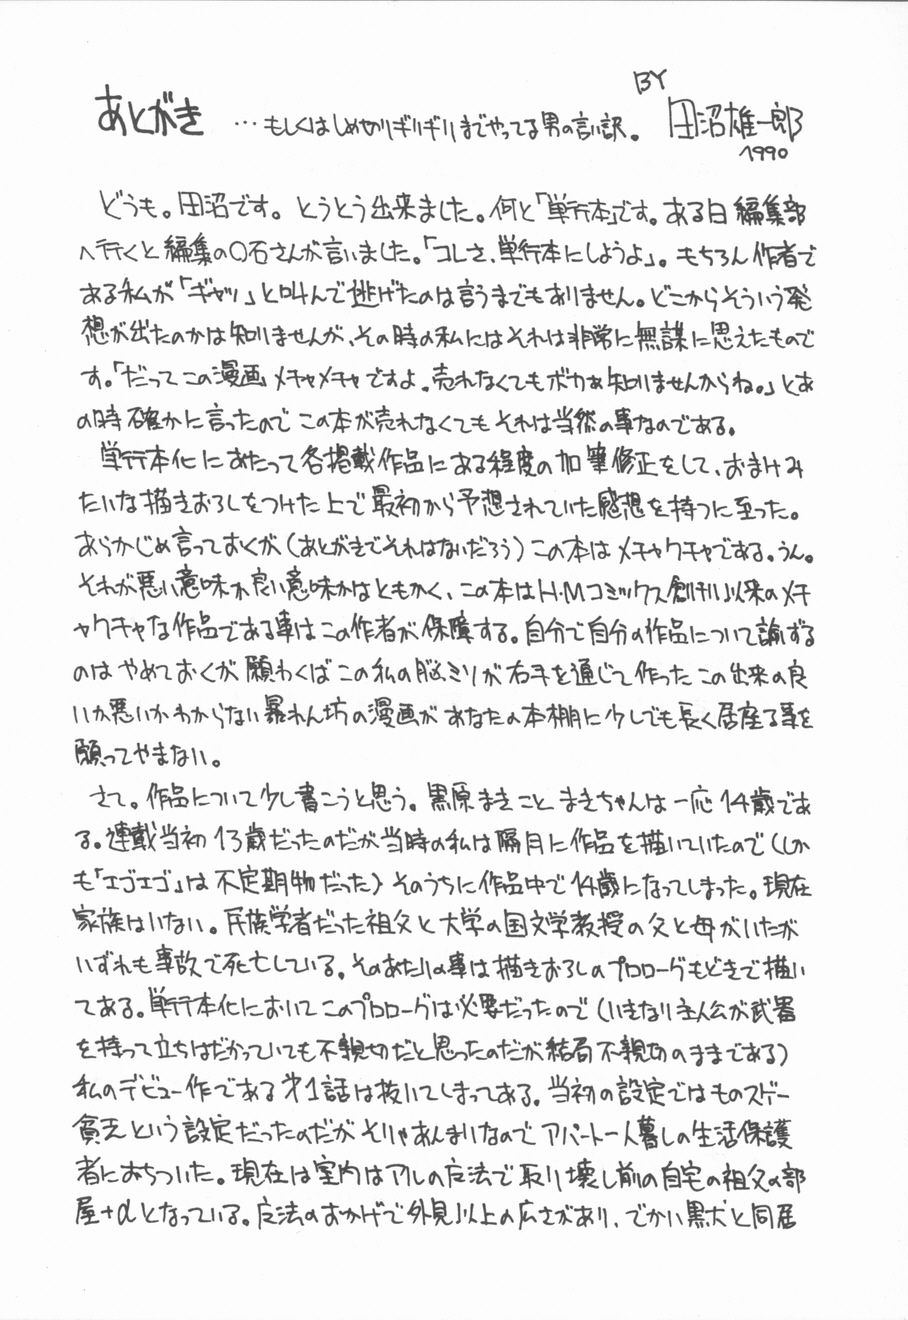 あとがき …もしくはしめ切りギリギリまでやってる男の言い訳。 BY 田沼雄一郎
1990
どうも。田沼です。とうとう出来ました。何と「単行本」です。ある日編集部
へ行くと編集の〇石さんが言いました。「コレさ、単行本にしようよ」。もちろん作者で
ある私が「ギャッ」と叫んで逃げたのは言うまでもありません。どこからそういう発
想が出たのかは知りませんが、その時の私にはそれは非常に無謀に思えたもので
す。「だってこの漫画メチャメチャですよ。売れなくてもボカぁ知りませんからね。」とあ
の時確かに言ったのでこの本が売れなくてもそれは当然の事なのである。
単行本化にあたって各掲載作品にある程度の加筆修正をして、おまけみ
たいな描きおろしをつけた上で最初から予想されていた感想を持つに至った。
あらかじめ言っておくが(あとがきでそれはないだろう)この本はメチャクチャである。うん。
それが悪い意味か良い意味かはともかく、この本はH・Mコミックス創刊以来のメチ
ャクチャな作品である事はこの作者が保障する。自分で自分の作品について論ずる
のはやめておくが願わくばこの私の脳ミソが右手を通じて作ったこの出来の良
いか悪いかわからない暴れん坊の漫画があなたの本棚に少しでも長く居座る事を
願ってやまない。
さて。作品について少し書こうと思う。黒原まきことまきちゃんは一応14歳であ
る。連載当初13歳だったのだが当時の私は隔月に作品を描いていたので(しか
も「エゴエゴ」は不定期物だった)そのうちに作品中で14歳になってしまった。現在
家族はいない。民族学者だった祖父と大学の国文学教授の父と母がいたが
いずれも事故で死亡している。そのあたりの事は描きおろしのプロローグもどきで描い
てある。単行本化においてこのプロローグは必要だったので(いきなり主人公が武器
を持って立ちはだかっていても不親切だと思ったのだが結局不親切のままである)
私のデビュー作である才1話は抜いてしまってある。当初の設定ではものスゲー
貧乏という設定だったのだがそりゃあんまりなのでアパート一人暮しの生活保護
者におちついた。現在は室内はアルの魔法で取り壊し前の自宅の祖父の部
屋+αとなっている。魔法のおかげで外見以上の広さがあり、でかい黒犬と同居